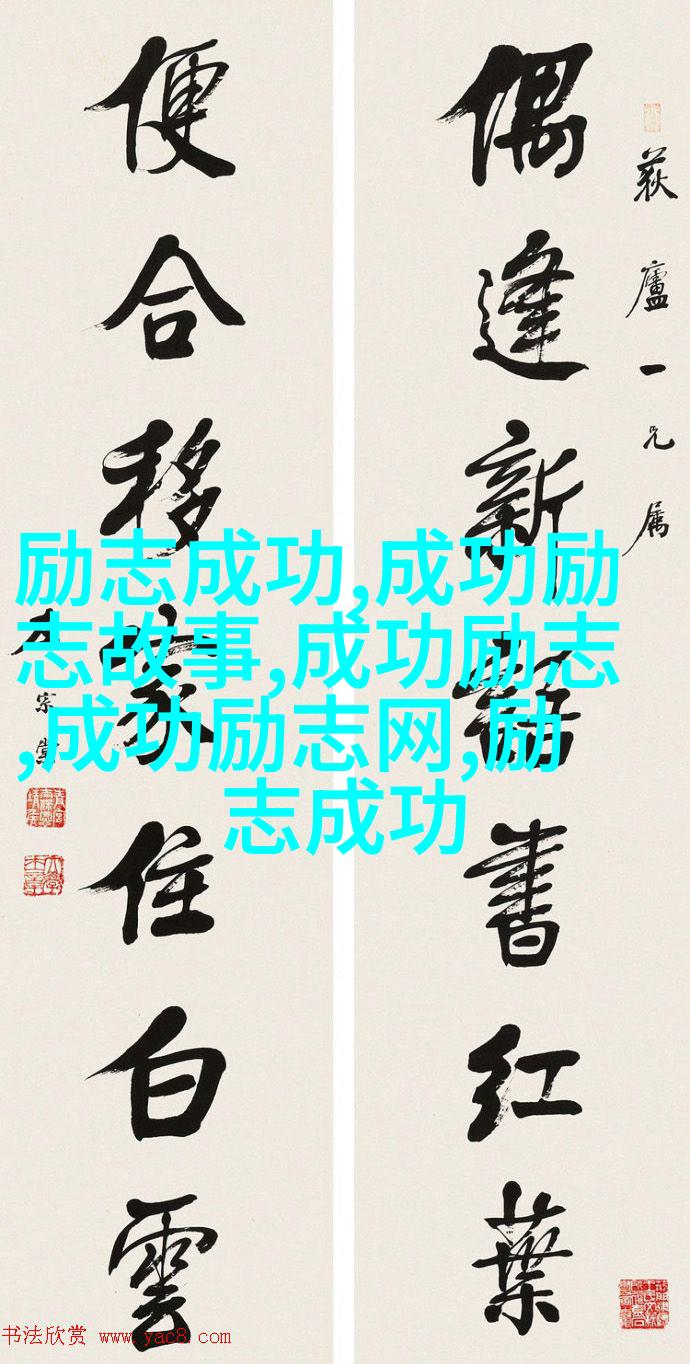 偶逢新語書紅葉
荻廬一兄属
便合移家住白雲
李宗棠
励志成功,成功励
志故事,成功励志
,成功励志网,励
志成功
书法欣赏 www.yac8.com